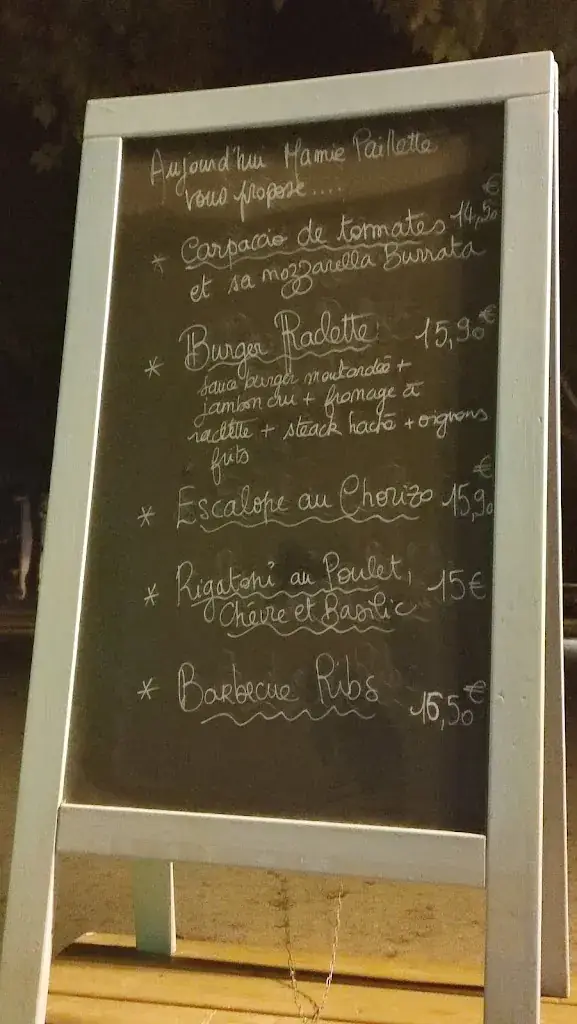 Aujourd'hui Mamie Paillette
vous propose....
* Carpaccio de tomates 14,50€
et sa mozzarella Burrata
* Burger Raclette 15,90€
sauce burger moutardée +
jambon cru + fromage à
raclette + steack haché + oignons
frits
* Escalope au Chorizo 15,90€
* Rigatoni au Poulet, 15€
Chèvre et Basilic
* Barbecue Ribs 16,50€